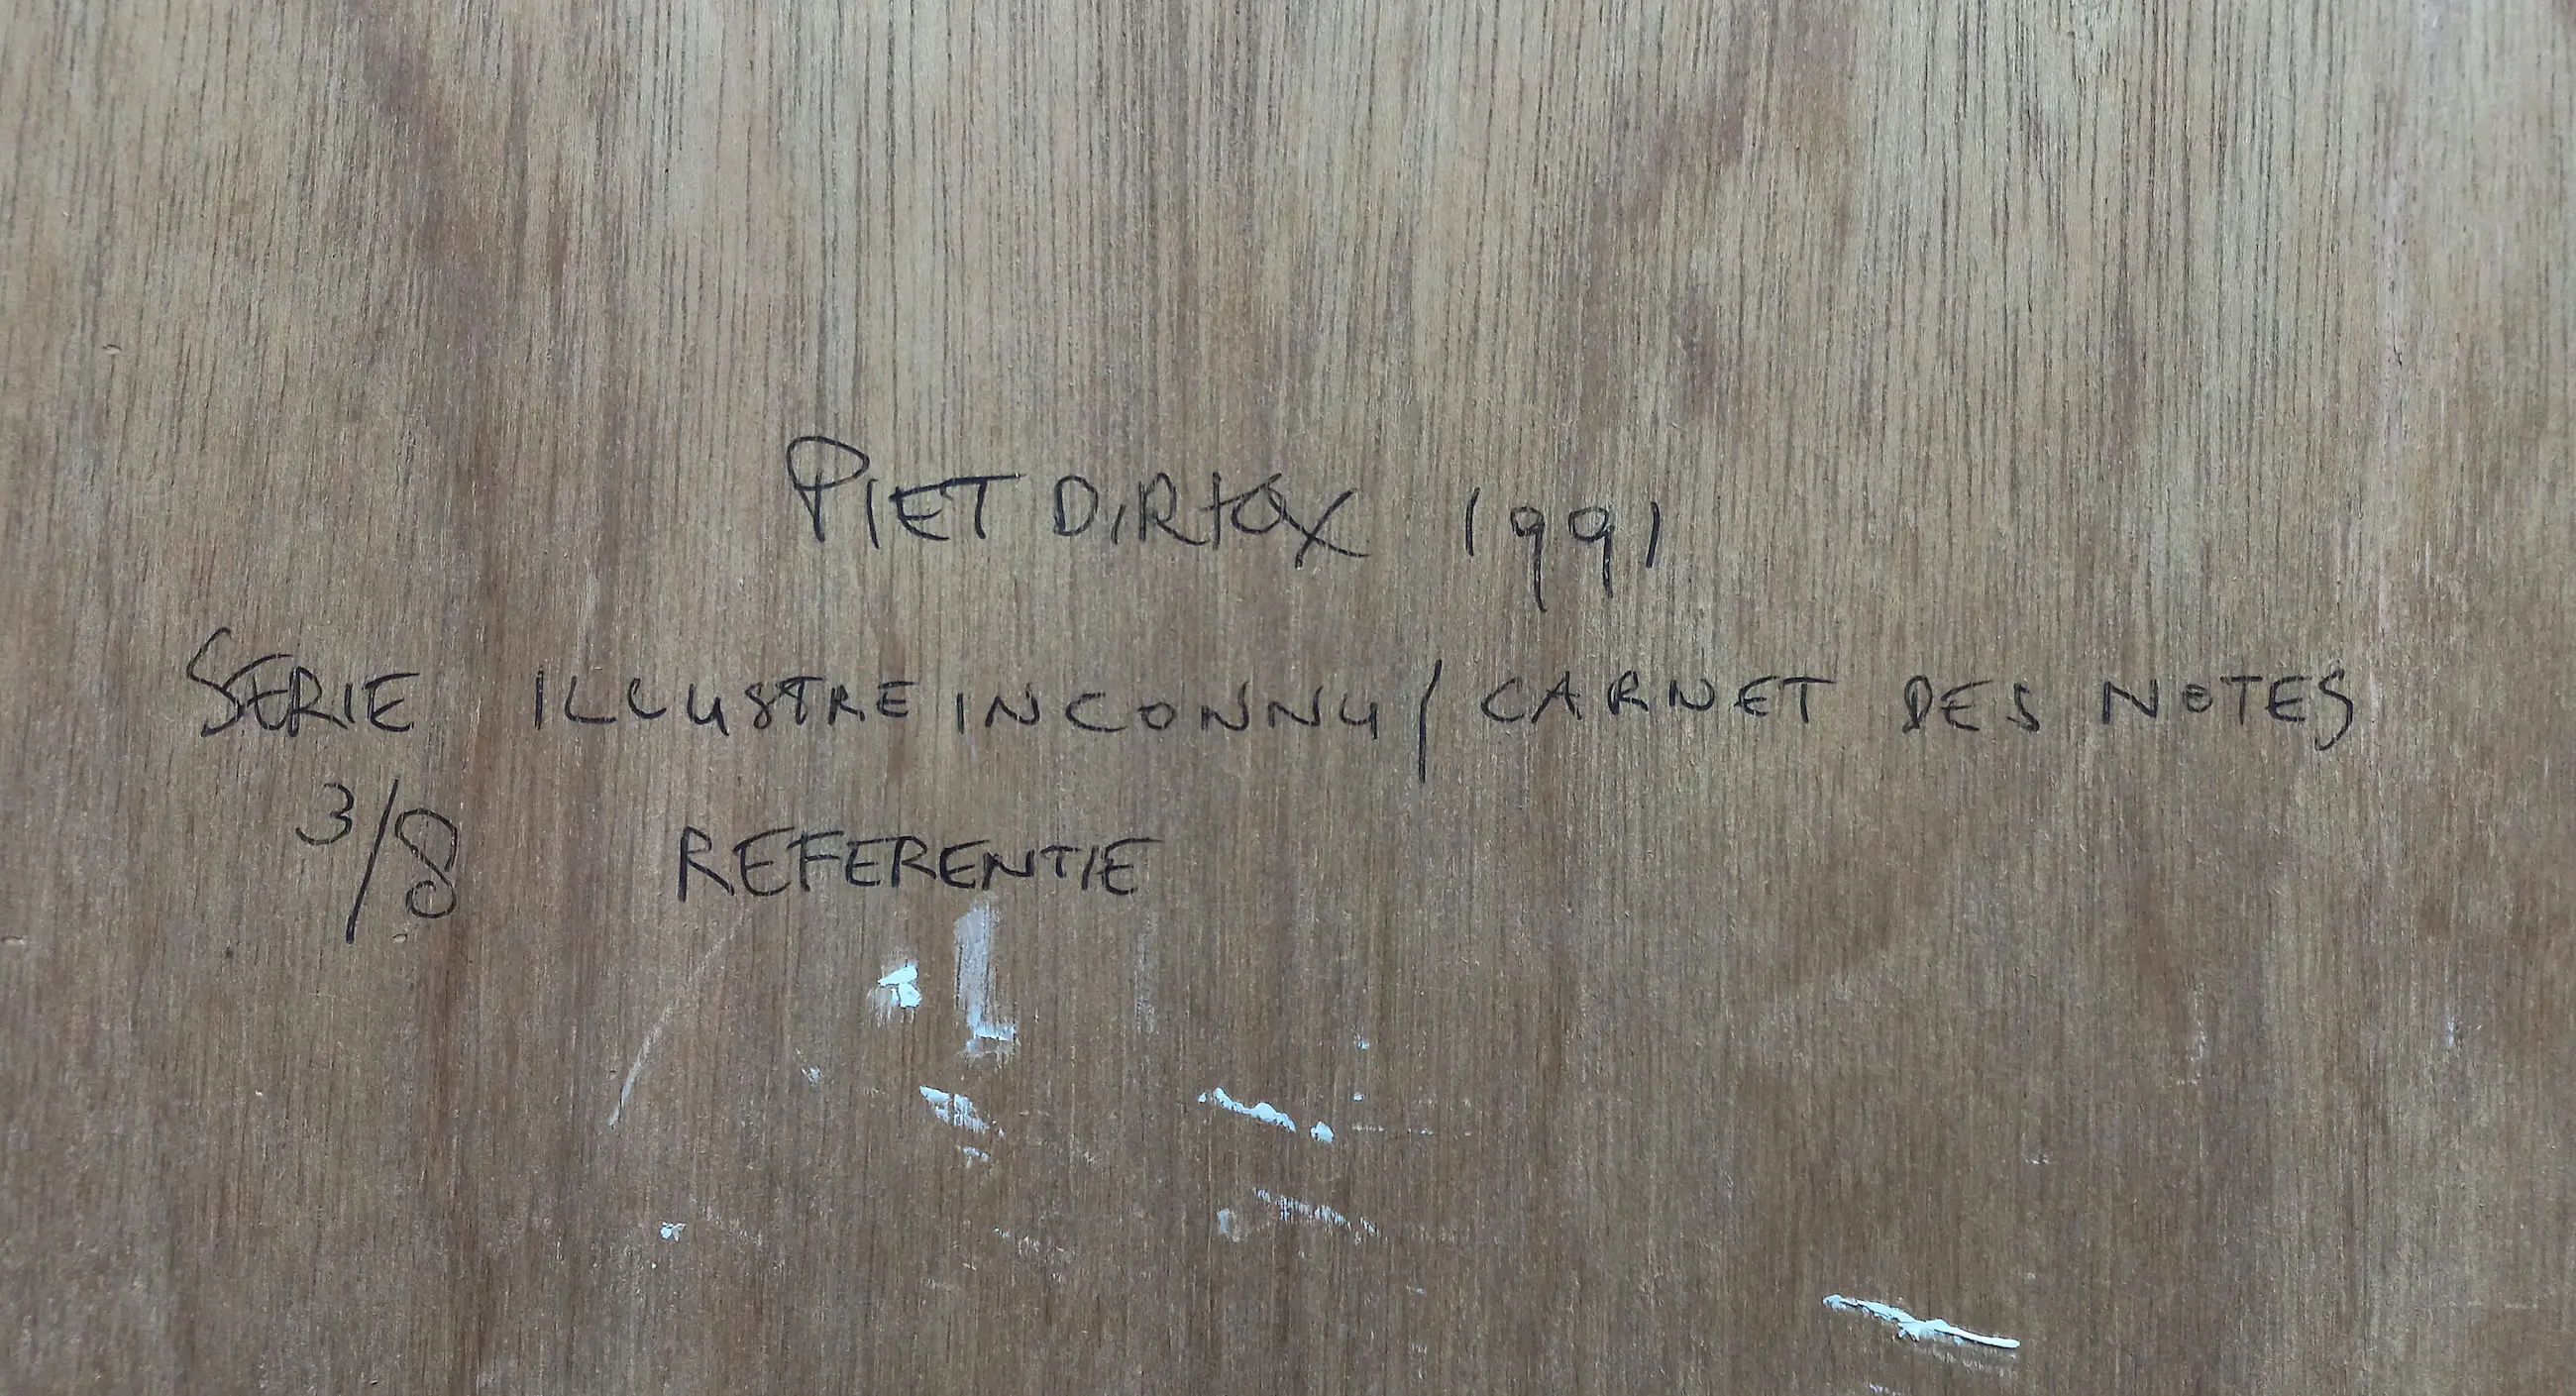 PIET DIRKX 1991
SERIE ILLUSTRE INCONNU / CARNET DES NOTES
3/8 REFERENTIE